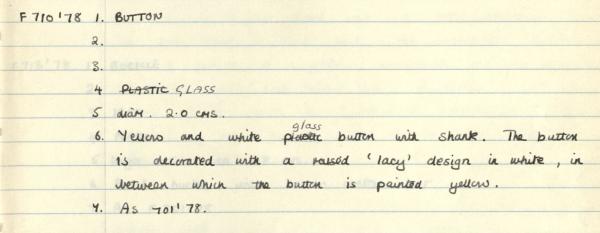 F710'78 1. BUTTON
2.
3.
4 PLASTIC GLASS
5 diam. 2.0 cms.
glass
6. Yellow and white plastic button with shank. The button
is decorated with a raised 'lacy' design in white, in
between which the button is painted yellow.
7. As 701'78.